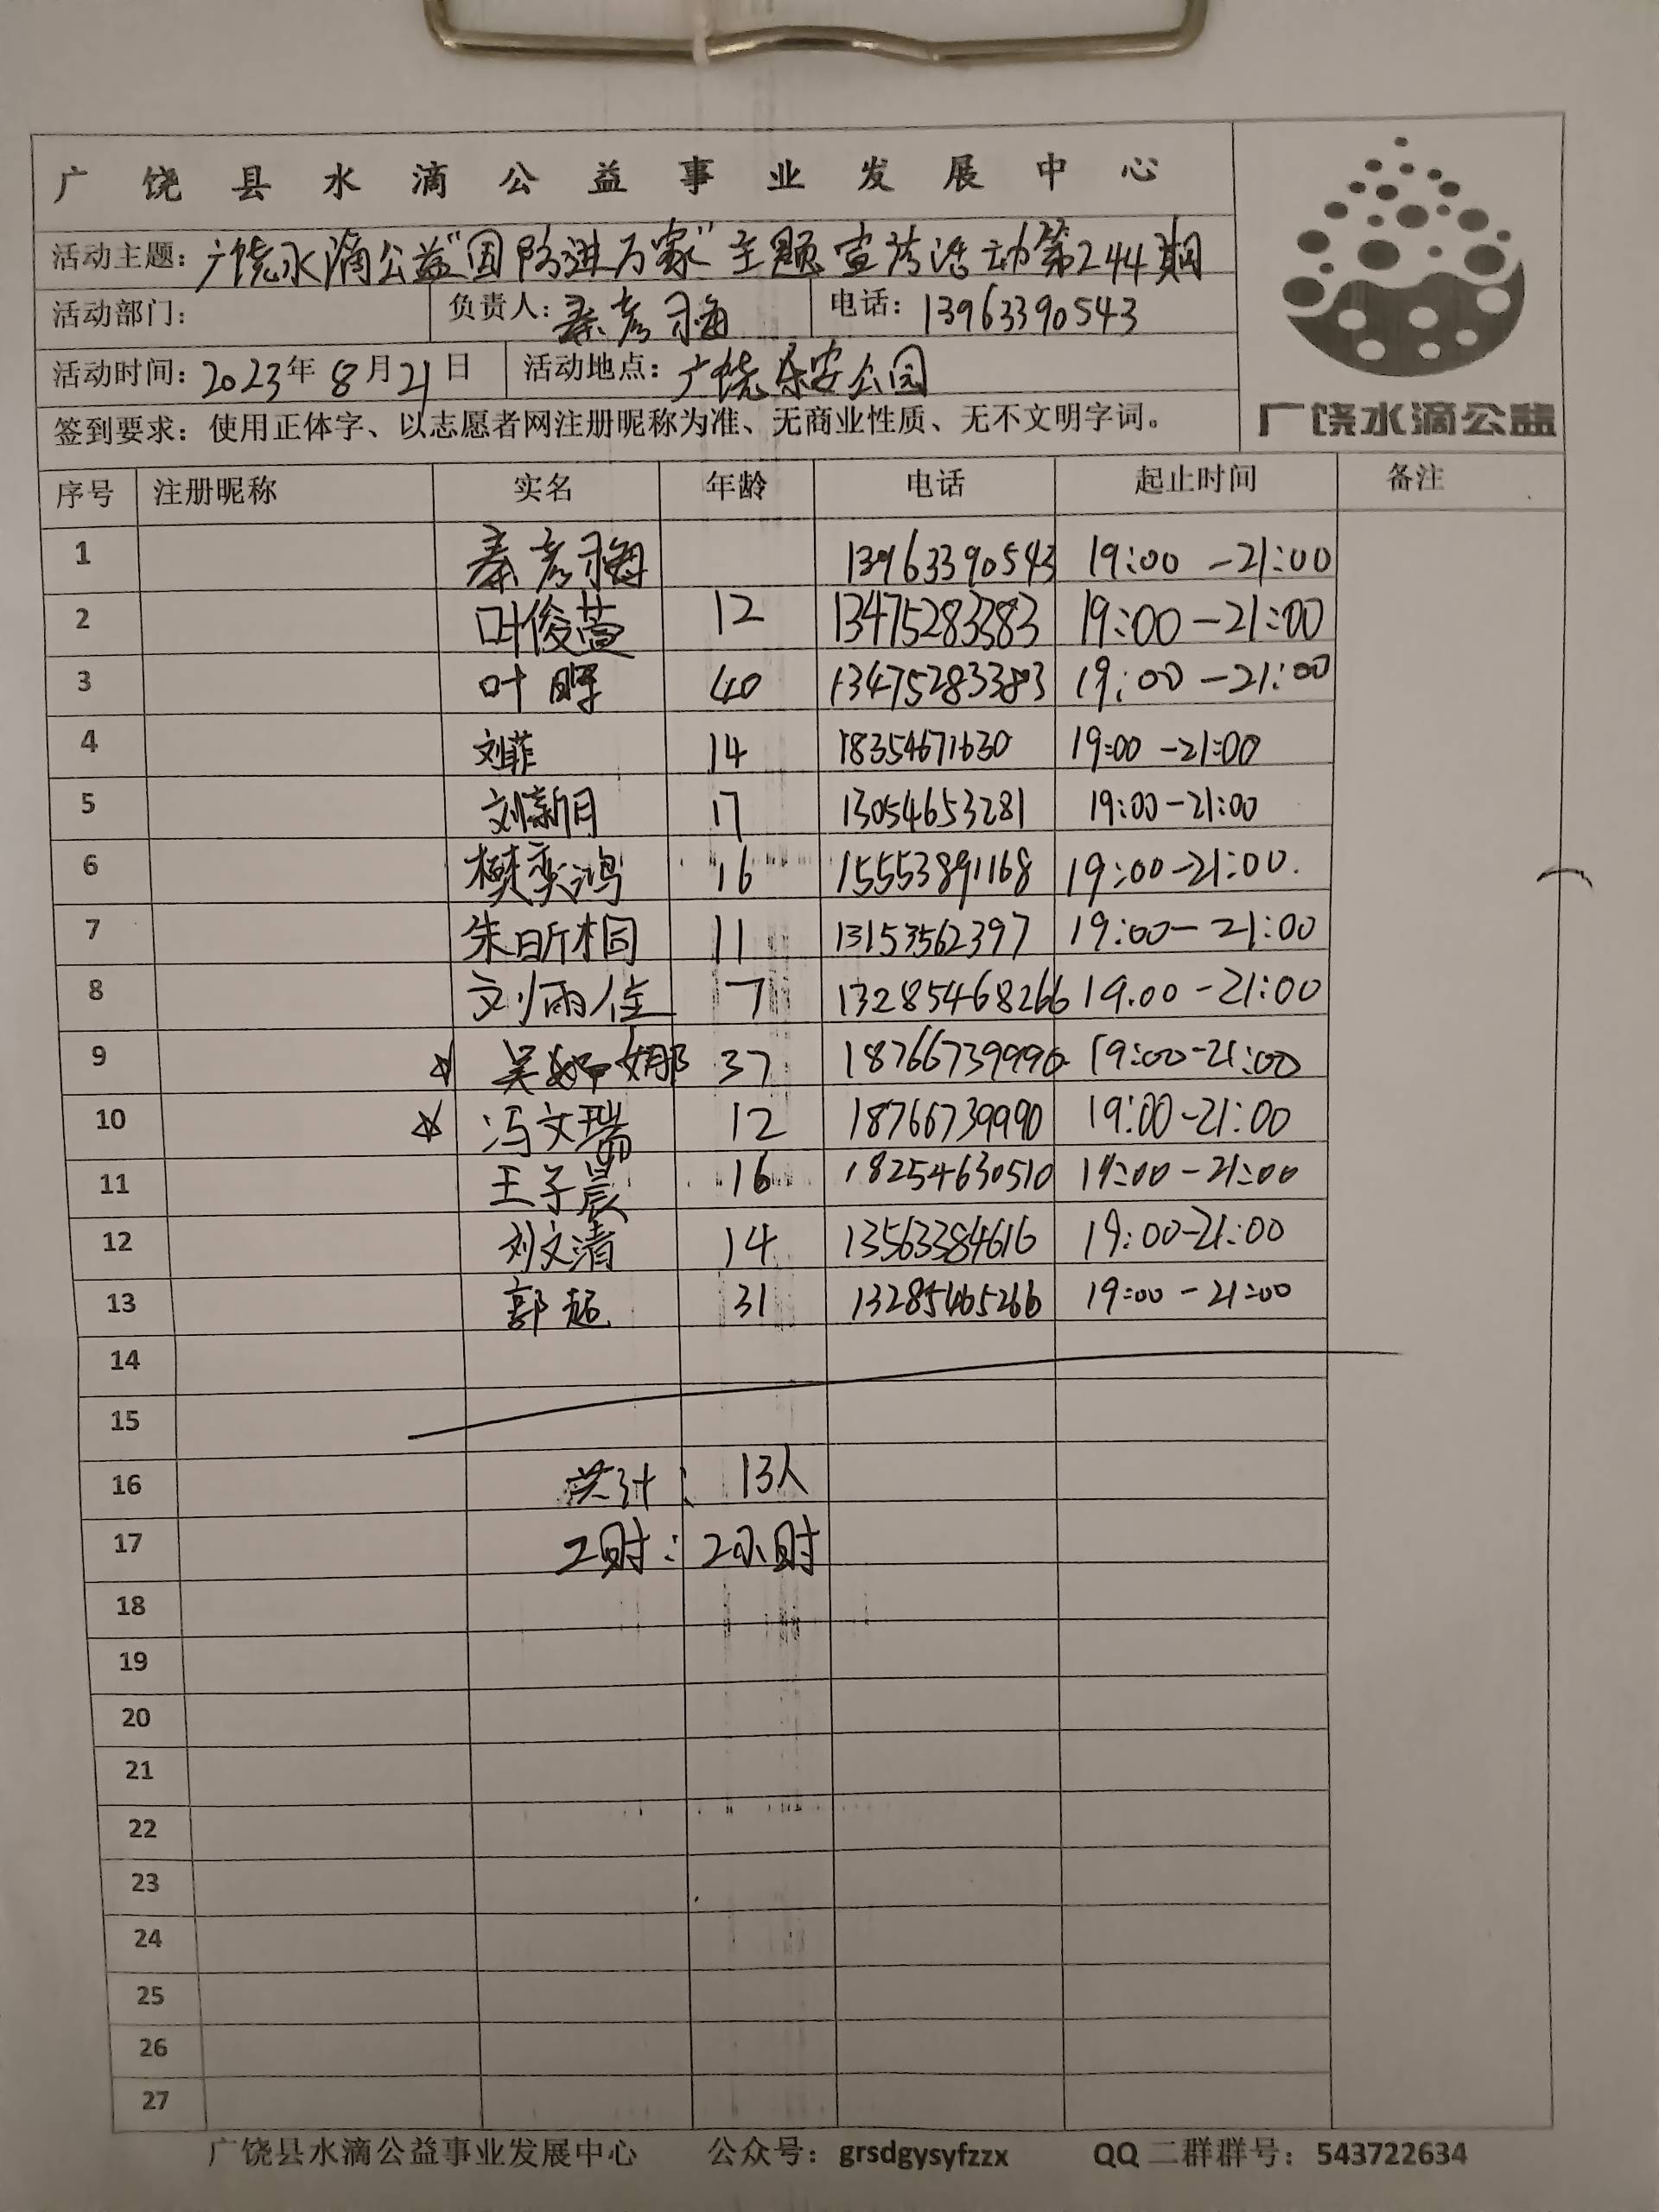 广饶县水滴公益事业发展中心
活动主题：广饶水滴公益"国防进万家"主题宣传活动第244期
活动部门： 负责人：秦彦海 电话：13963390543
活动时间：2023年8月21日 活动地点：广饶乐安公园
签到要求：使用正体字、以志愿者网注册昵称为准、无商业性质、无不文明字词。
广饶水滴公益
序号 注册昵称 实名 年龄 电话 起止时间 备注
1 秦彦海 13963390543 19:00-21:00
2 叶俊萱 12 13475283383 19:00-21:00
3 叶晖 40 13475283383 19:00-21:00
4 刘菲 14 18354671630 19:00-21:00
5 刘新月 17 13054653281 19:00-21:00
6 樊奕鸿 16 15553891168 19:00-21:00.
7 朱昕桐 11 13153562397 19:00-21:00
8 刘雨佳 7 13285468266 19.00-21:00
9 ☆ 吴娜 37 18766739990 19:00-21:00
10 ☆ 冯文瑞 12 18766739990 19:00-21:00
11 王子晨 16 18254630510 19:00-21:00
12 刘文清 14 13563384616 19:00-21:00
13 郭超 31 13285465266 19:00-21:00
14
15
16 共计：13人
17 工时：2小时
18
19
20
21
22
23
24
25
26
27
广饶县水滴公益事业发展中心 公众号：grsdgysyfzzx QQ二群群号：543722634